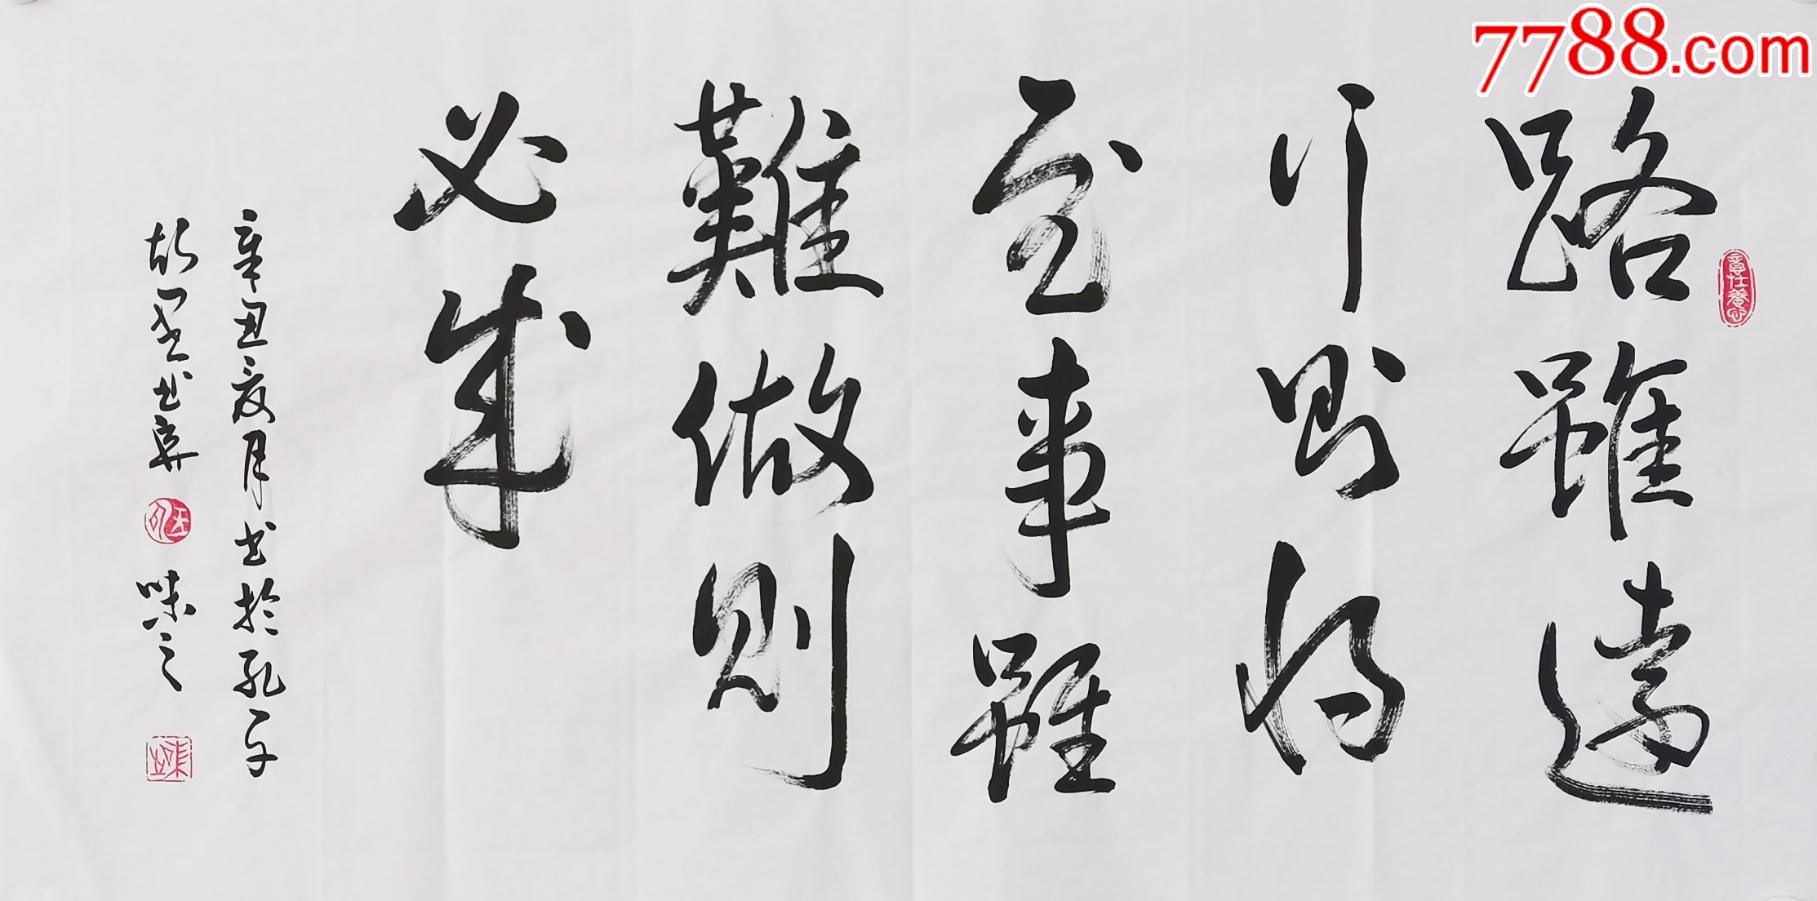 7788.com
路雖遠
行則將
至事雖
難做則
必成
辛丑夏月書於孔子
故里
味之